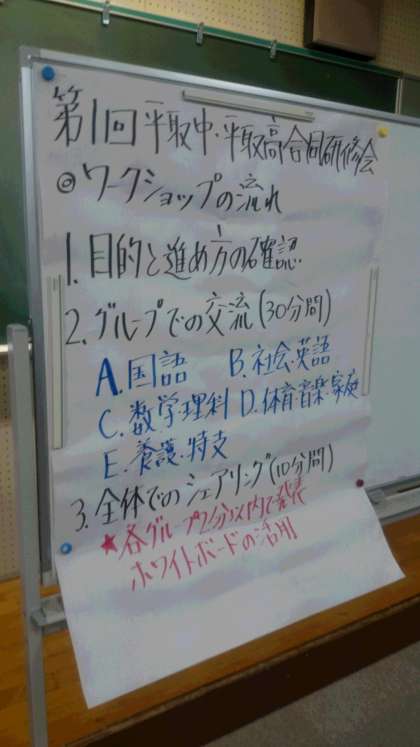 第1回 平取中・平取高合同研修会
◎ワークショップの流れ
1. 目的と進め方の確認
2. グループでの交流(30分間)
A. 国語 B. 社会・英語
C. 数学・理科 D. 体育・音楽・家庭
E. 養護・特支
3. 全体でのシェアリング(10分間)
★各グループ2分以内で発表
ホワイトボードの活用